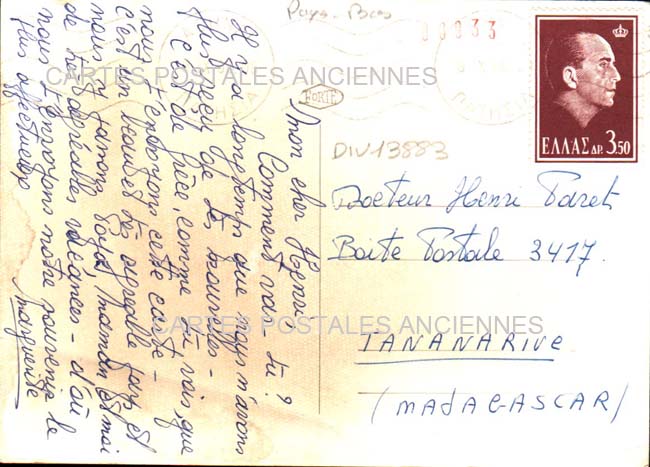 Pays-Bas
00033
ΕΛΛΑΣ ΔΡ. 3.50
PORTE
DIV13883
CARTES POSTALES ANCIENNES
CARTES POSTALES ANCIENNES
Docteur Henri Paret
Boite Postale 3417.
TANANARIVE
(MADAGASCAR)
Mon cher Henri
Comment vas-tu?
Il y a longtemps que nous n'avons
plus reçu de tes nouvelles-
C'est de Grèce, comme tu vois, que
nous t'envoyons cette carte-
C'est un beau et très agréable pays et
nous y passons tous, maman et moi
de très agréables vacances- d'où
nous t'envoyons notre souvenir le
plus affectueux
Marguerite